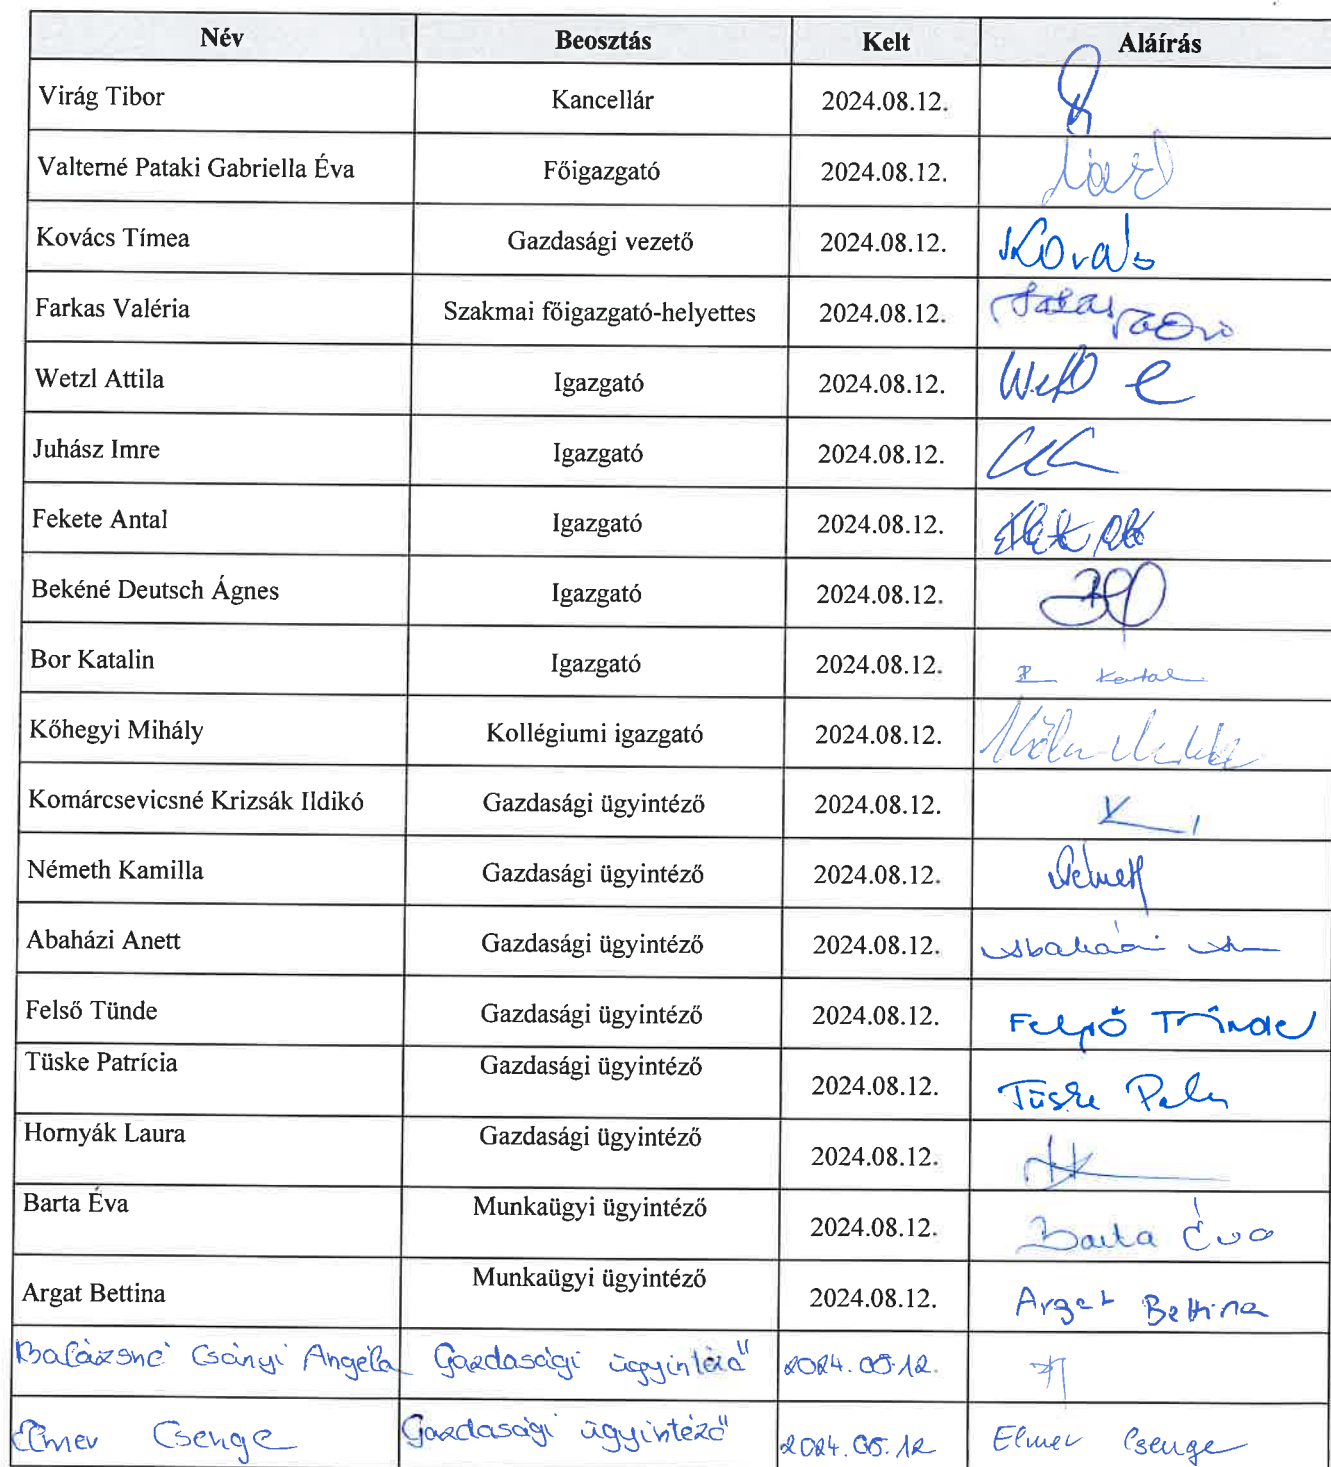 Név Beosztás Kelt Aláírás
Virág Tibor Kancellár 2024.08.12.
Valterné Pataki Gabriella Éva Főigazgató 2024.08.12.
Kovács Tímea Gazdasági vezető 2024.08.12. Kovács
Farkas Valéria Szakmai főigazgató-helyettes 2024.08.12.
Wetzl Attila Igazgató 2024.08.12.
Juhász Imre Igazgató 2024.08.12.
Fekete Antal Igazgató 2024.08.12.
Bekéné Deutsch Ágnes Igazgató 2024.08.12.
Bor Katalin Igazgató 2024.08.12.
Kőhegyi Mihály Kollégiumi igazgató 2024.08.12.
Komárcsevicsné Krizsák Ildikó Gazdasági ügyintéző 2024.08.12.
Németh Kamilla Gazdasági ügyintéző 2024.08.12. Németh
Abaházi Anett Gazdasági ügyintéző 2024.08.12. Abaházi
Felső Tünde Gazdasági ügyintéző 2024.08.12. Felső Tünde
Tüske Patrícia Gazdasági ügyintéző 2024.08.12. Tüske
Hornyák Laura Gazdasági ügyintéző 2024.08.12.
Barta Éva Munkaügyi ügyintéző 2024.08.12. Barta Éva
Argat Bettina Munkaügyi ügyintéző 2024.08.12. Argat Bettina
Balázsné Csányi Angéla Gazdasági ügyintéző 2024.08.12.
Elmer Csenge Gazdasági ügyintéző 2024.08.12 Elmer Csenge